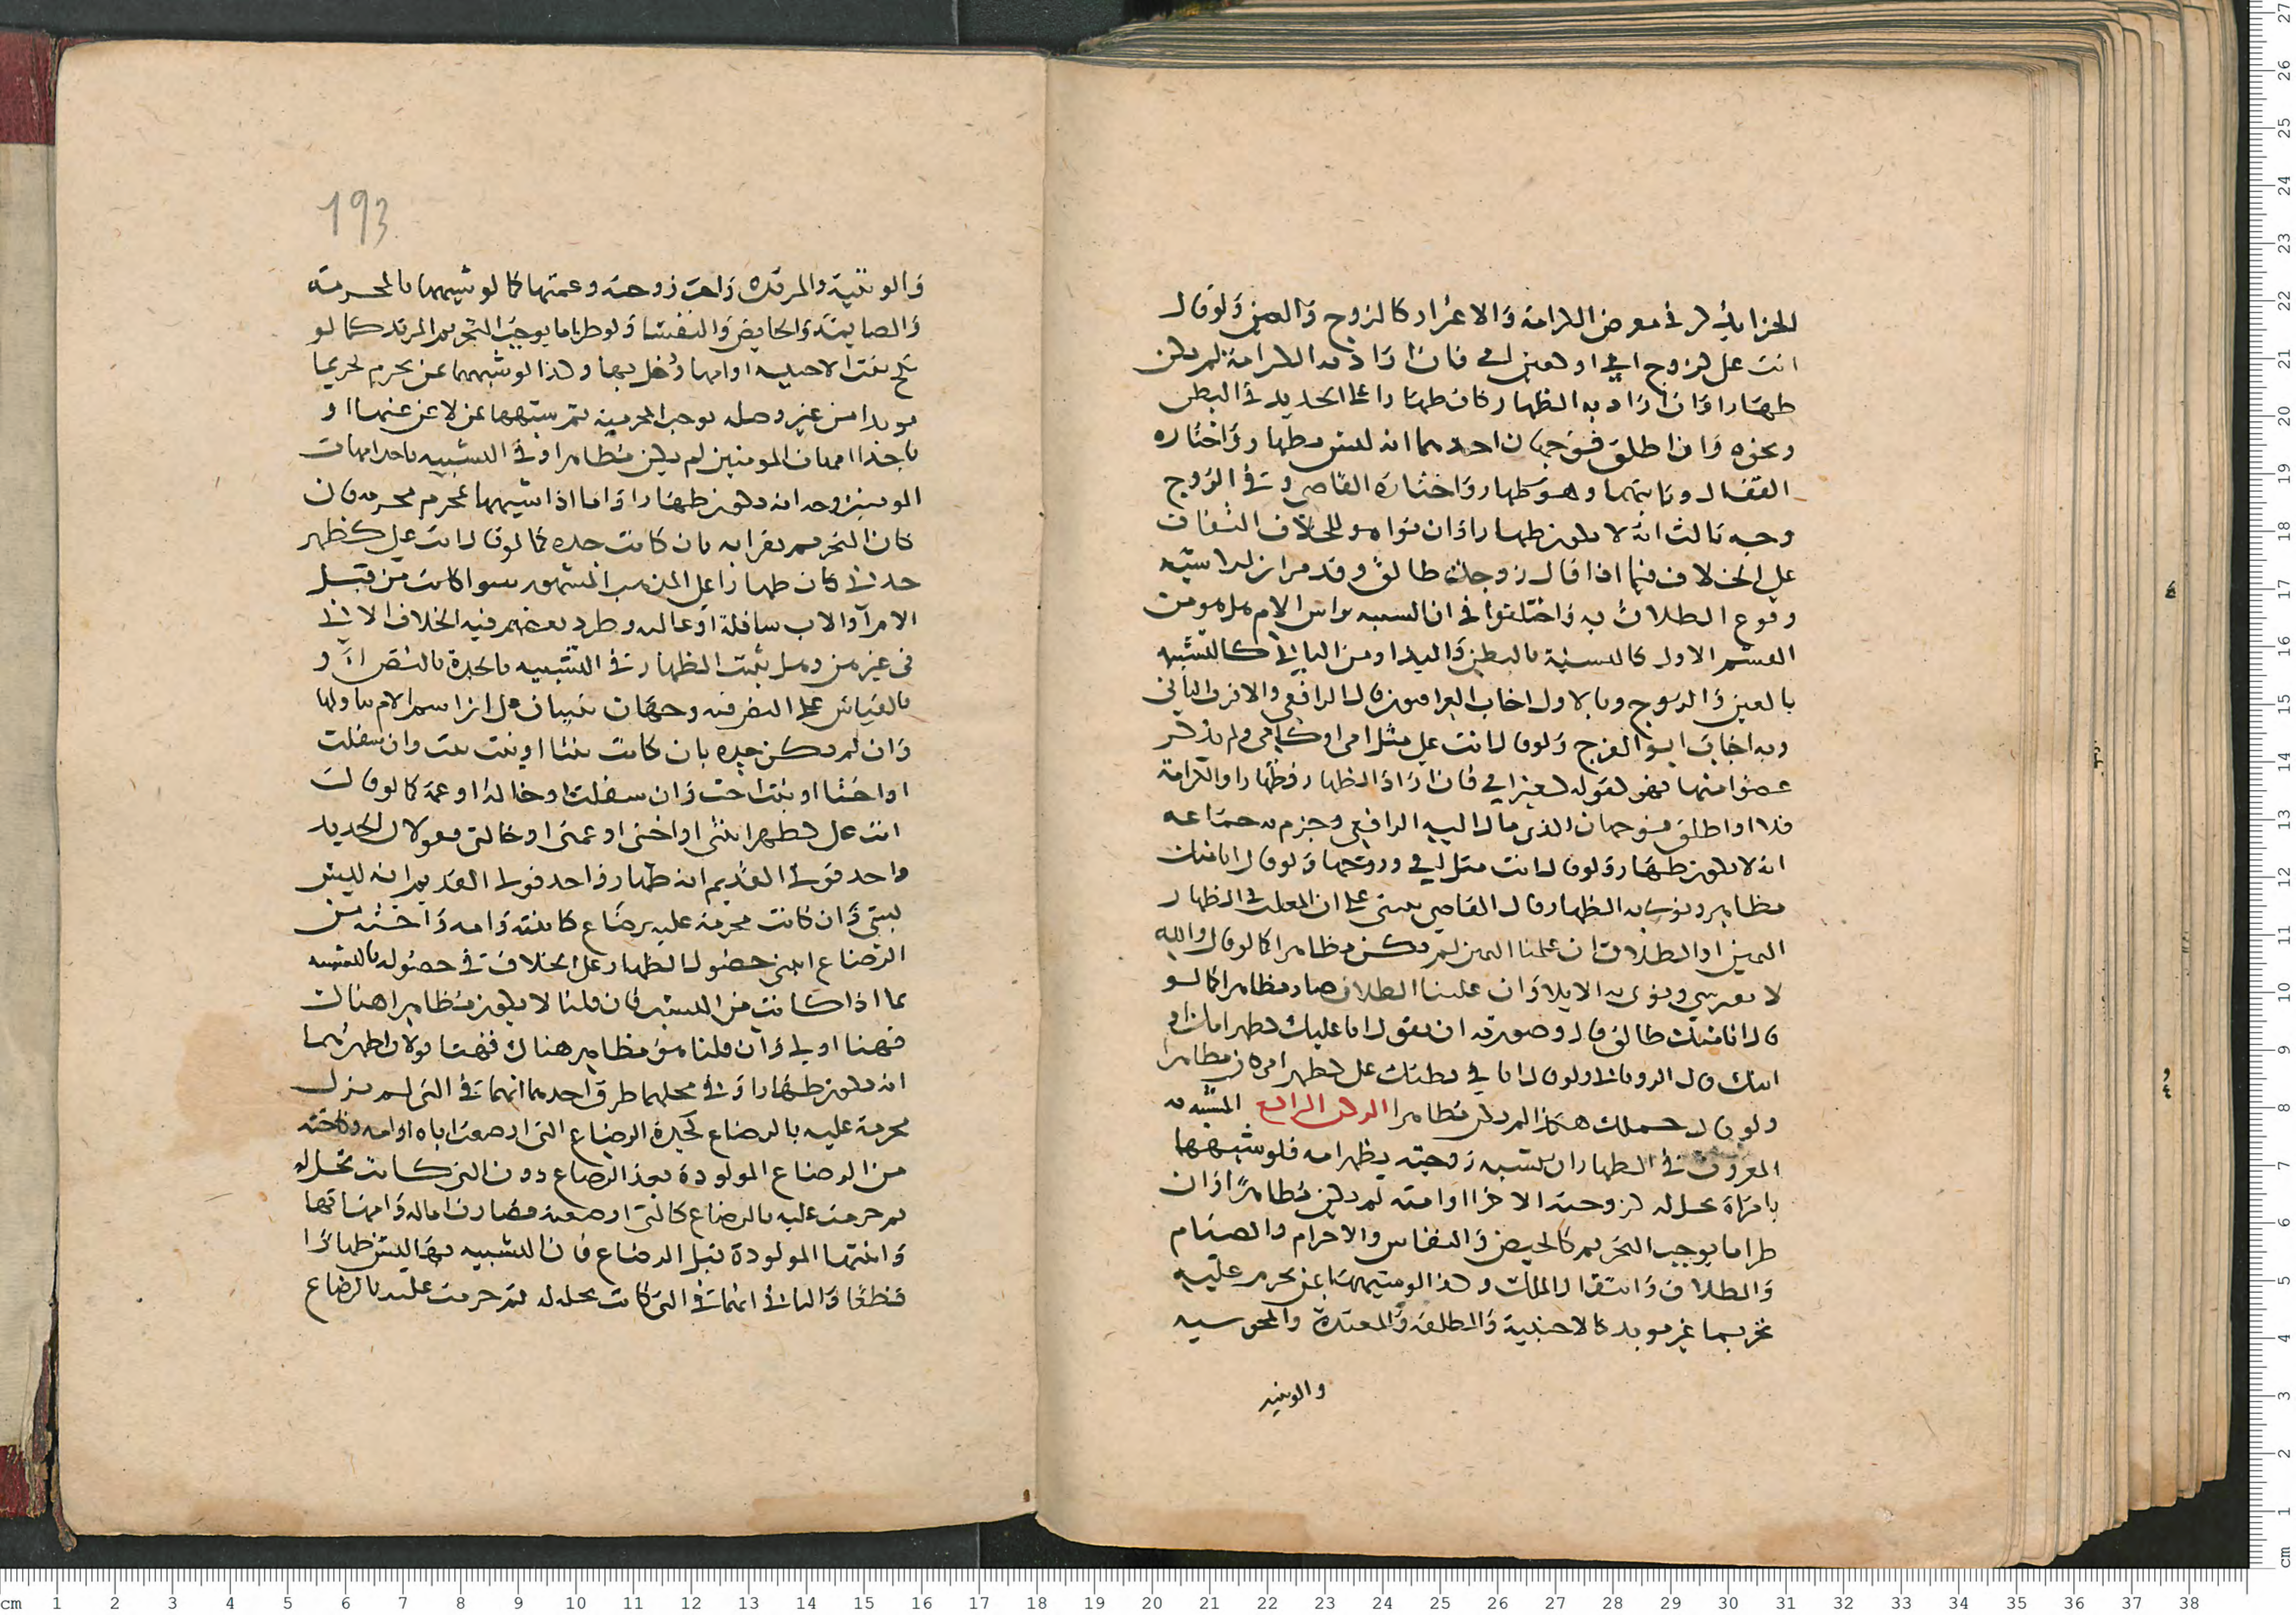 انت علي كروح امي او كعين امي فان اراد به الكرامة لم يكن
ظهارا وان اراد به الظهار كان ظهارا على الجديد في البطن
ونحوه وان اطلق فوجهان احدهما انه ليس بظهار واختاره
القفال وثانيهما وهو ظهار واختاره القاضي وفي الروح
وجه ثالث انه لا يكون ظهارا وان نواه
على الخلاف فيما اذا قال زوجتك طالق وقد مر
وقوع الطلاق به واختلفوا في ان التشبيه براس الام هل هو من
القسم الاول كالتشبيه بالبطن واليد او من الثاني كالتشبيه
بالعين والروح وبالاول اجاب العراقيون قال الرافعي والاقرب الثاني
وبه اجاب ابو الفرج ولو قال انت علي مثل امي او كامي ولم يذكر
عضوا منها فهو كقوله كعين امي فان اراد الظهار فظهار او الكرامة
فلا او اطلق فوجهان الذي مال اليه الرافعي وجزم به جماعة
انه لا يكون ظهار ولو قال انت مثل امي وروحها ولو قال انا منك
مظاهر ونوى به الظهار قال القاضي يبنى على ان المغلب في الظهار
اليمين او الطلاق ان غلبنا اليمين لم يكن مظاهرا كما لو قال والله
لا ونوى به الايلا وان غلبنا الطلاق صار مظاهرا كما لو
قال انا منك طالق قال وصورته ان يقول انا عليك كظهر
ولو قال هكذا لم يكن مظاهرا الركن الرابع المشبه به
المعروف في الظهار ان يشبه زوجته بظهر امه فلو شبهها
بامراة تحل له كزوجته الاخرى او امته لم يكن مظاهرا وان
طرا ما يوجب التحريم كالحيض والنفاس والاحرام والصيام
والطلاق وانتقال الملك وكذا لو شبهها بمن تحرم عليه
تحريما غير موبد كالاجنبية والمطلقة والمعتدة والمجوسيه
والوثنيه
193
والوثنية والمرتده واخت زوجته وعمتها كما لو شبهها بالمحرمة
والصايمة والحايض والنفسا ولو طرا ما يوجب التحريم الموبد كما لو
نكح بنت الاجنبيه او امها ودخل بها وكذا لو شبهها بمن يحرم تحريما
موبدا من غير وصله توجب المحرميه ثم شبهها بمن لاعن عنها او
باحدا امهات المومنين لم يكن مظاهرا وفي التشبيه باحدا امهات
المومنين وجه انه يكون ظهارا واما اذا شبهها بمحرم محرمه فان
كان التحريم بقرابه بان كانت جده كما لو قال انت علي كظهر
جدتي كان ظهارا على المذهب المشهور سوا كانت من قبل
الام او الاب سافلة او عاليه وطرد بعضهم فيه الخلاف الاتي
في غيرهن وهل يثبت الظهار في التشبيه بالجدة بالنص او
بالقياس على النص فيه وجهان يبنيان على ان اسم الام يتناولها
وان لم يكن جده بان كانت بنتا او بنت بنت وان سفلت
او اختا او بنت اخت وان سفلت او خالة او عمة كما لو قال
انت علي كظهر ابنتي او اختي او عمتي او خالتي فقولان الجديد
واحد قولي القديم انه ظهار واحد قولي القديم انه ليس
بشي وان كانت محرمة عليه برضاع كابنته وامه واخته من
الرضاع انبنى حصول الظهار على الخلاف في حصوله بالتشبيه
بما اذا كانت من النسب فان قلنا لا يكون مظاهرا هناك
فهنا اولى وان قلنا هو مظاهر هناك فهنا قولان اظهرهما
انه يكون ظهارا وفي محلهما طرق احدها انهما في التي لم تزل
محرمة عليه بالرضاع كجدة الرضاع التي ارضعت اباه او امه وكاخته
من الرضاع المولودة بعد الرضاع دون التي كانت تحل له
ثم حرمت عليه بالرضاع كالتي ارضعته فصارت اما له وامهاتها
وابنتها المولودة قبل الرضاع فان التشبيه بها ليس ظهارا
قطعا والثاني انهما في التي كانت تحل له ثم حرمت عليه بالرضاع